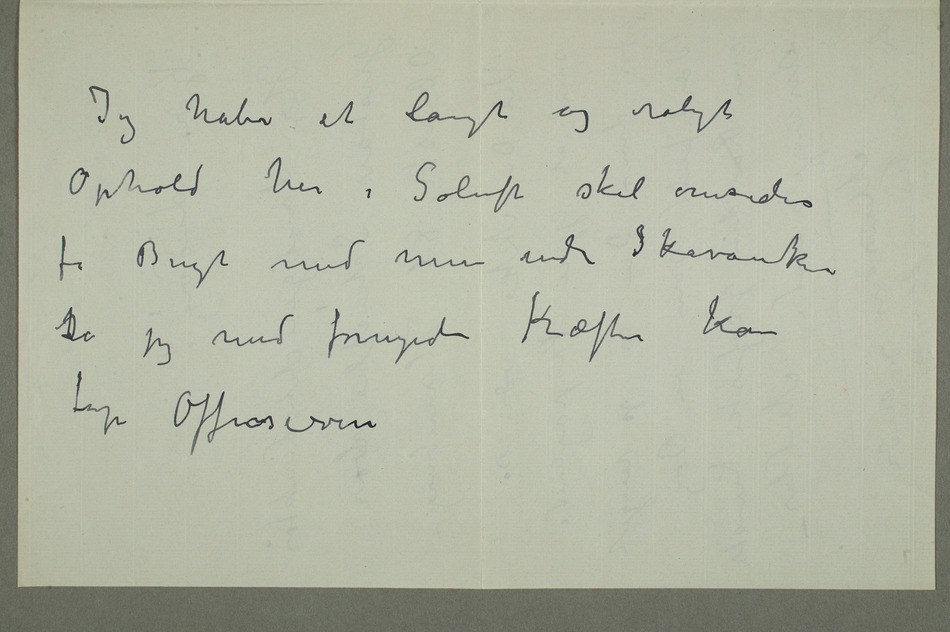 Jeg haber et langt og roligt
Ophold her i Solluft skal omsider
få Bugt med mine indre Skavanker
Så jeg med fornyede Kræfter kan
tage Offensiven